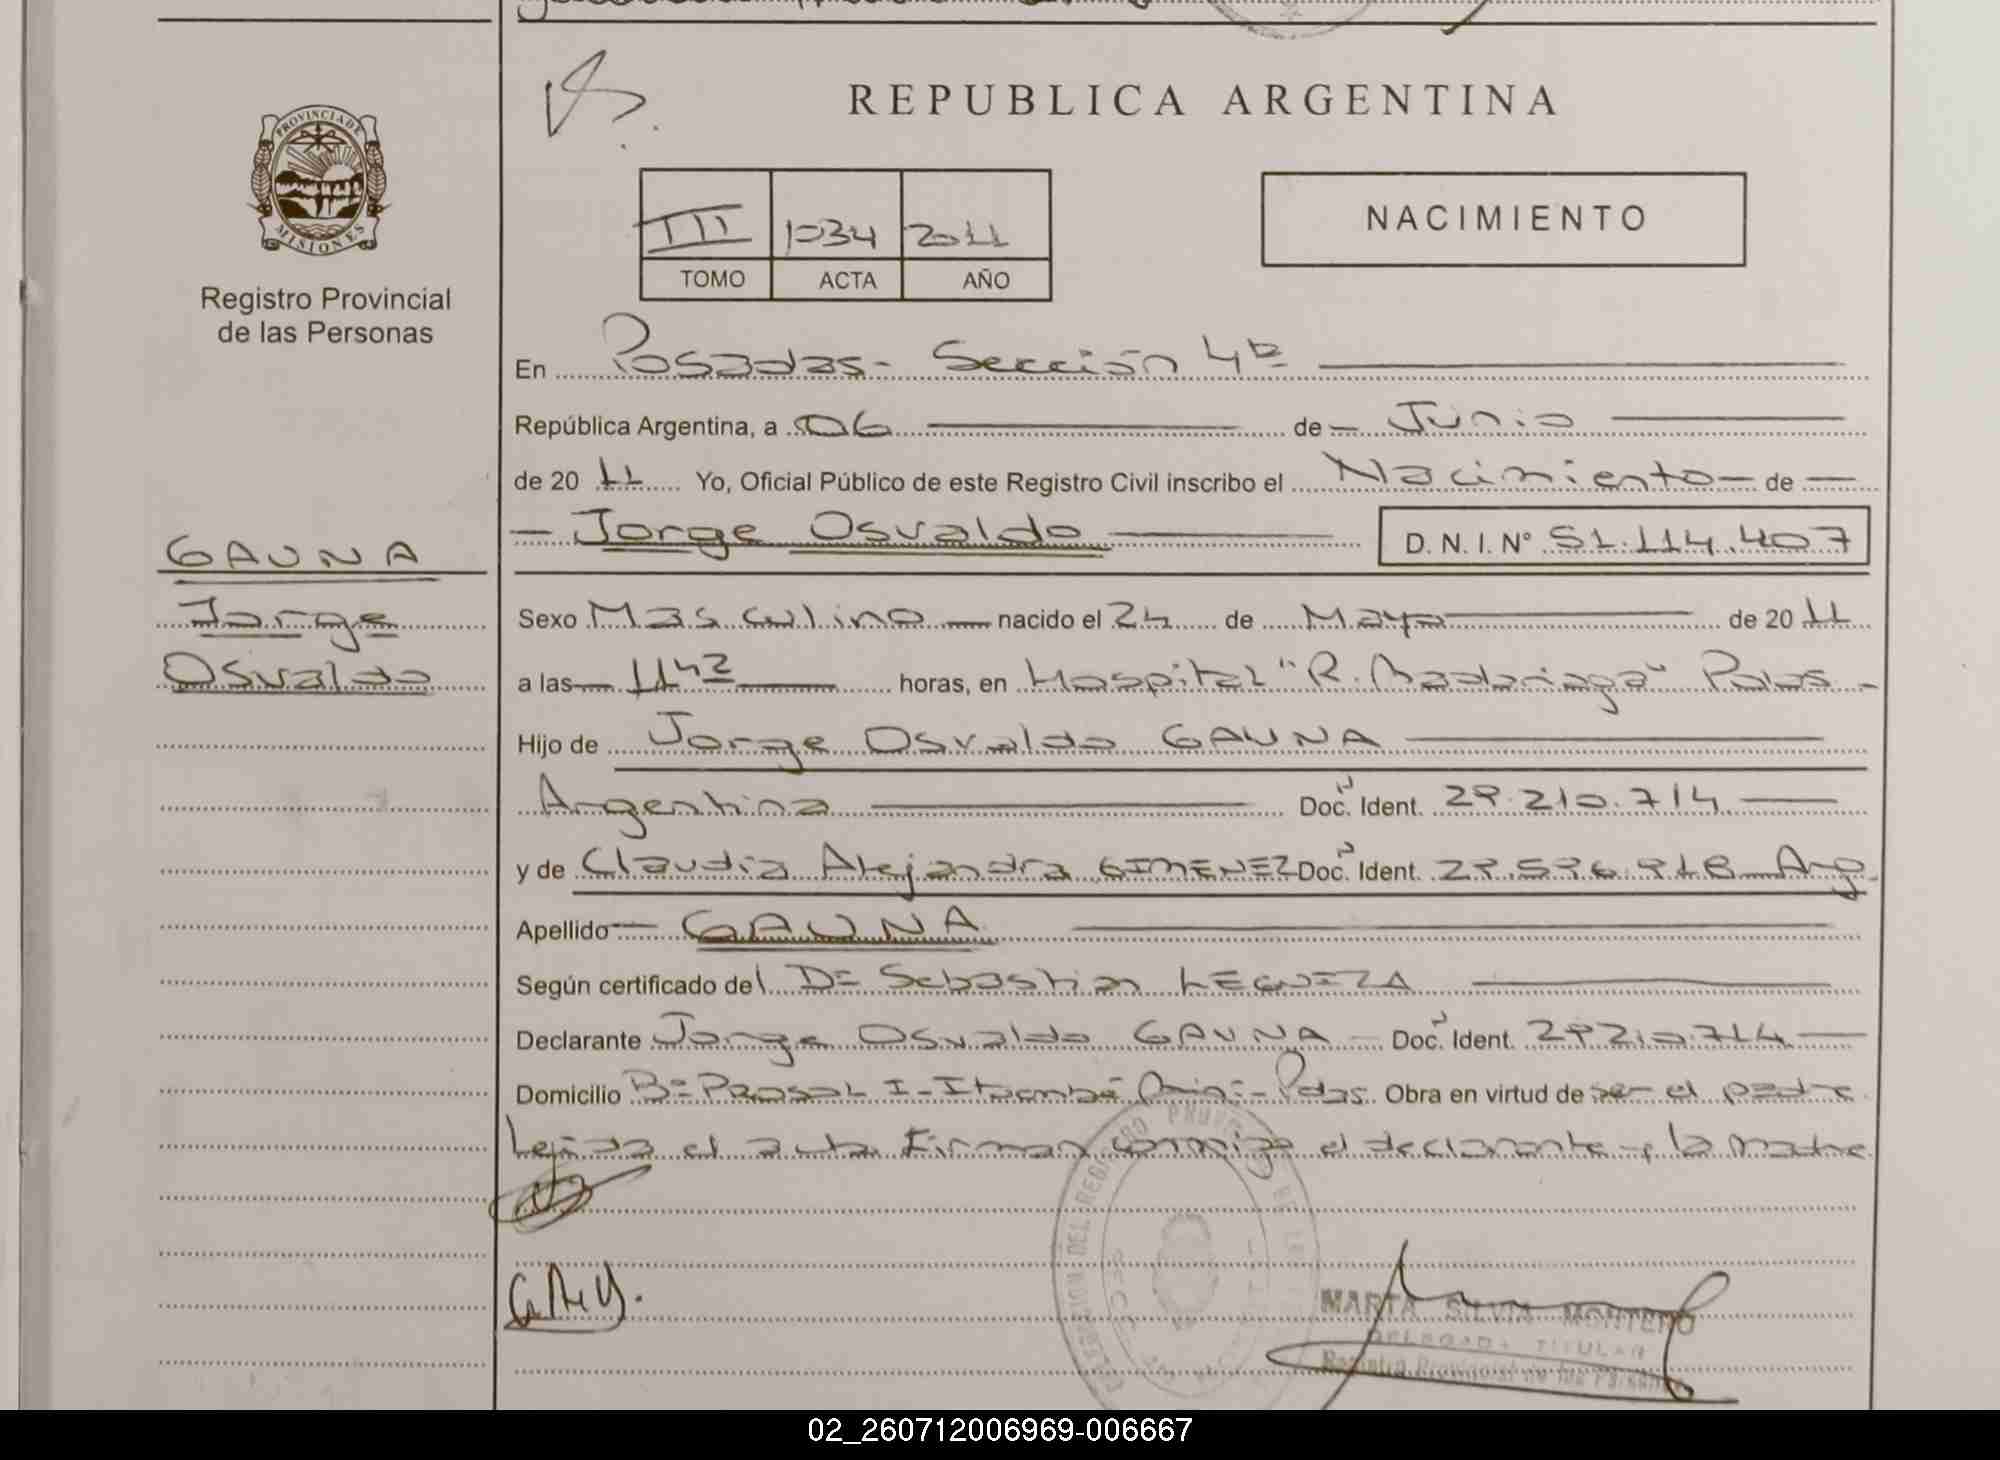 REPUBLICA ARGENTINA
PROVINCIA DE
MISIONES
Registro Provincial
de las Personas
III 1034 2011
TOMO ACTA AÑO
NACIMIENTO
En Posadas - Sección 4ª
República Argentina, a 06 de Junio
de 2011 Yo, Oficial Público de este Registro Civil inscribo el Nacimiento de
Jorge Osvaldo D. N. I. Nº 51.114.407
GAUNA
Jorge
Osvaldo
Sexo Masculino nacido el 24 de Mayo de 2011
a las 11 42 horas, en Hospital "R. Madariaga" Pdas
Hijo de Jorge Osvaldo GAUNA
Argentina Doc. Ident. 29.210.714
y de Claudia Alejandra GIMENEZ Doc. Ident. 29.596.918 Arg
Apellido GAUNA
Según certificado del Dº Sebastian LEGUIZA
Declarante Jorge Osvaldo GAUNA Doc. Ident. 29210.714
Domicilio Bº PROSOL I - Itaembé Miní - Pdas. Obra en virtud de ser el padre
Leída el acta firman conmigo el declarante y la madre
MARTA SILVIA MONTERO
DELEGADA TITULAR
Registro Provincial de las Personas
02_260712006969-006667